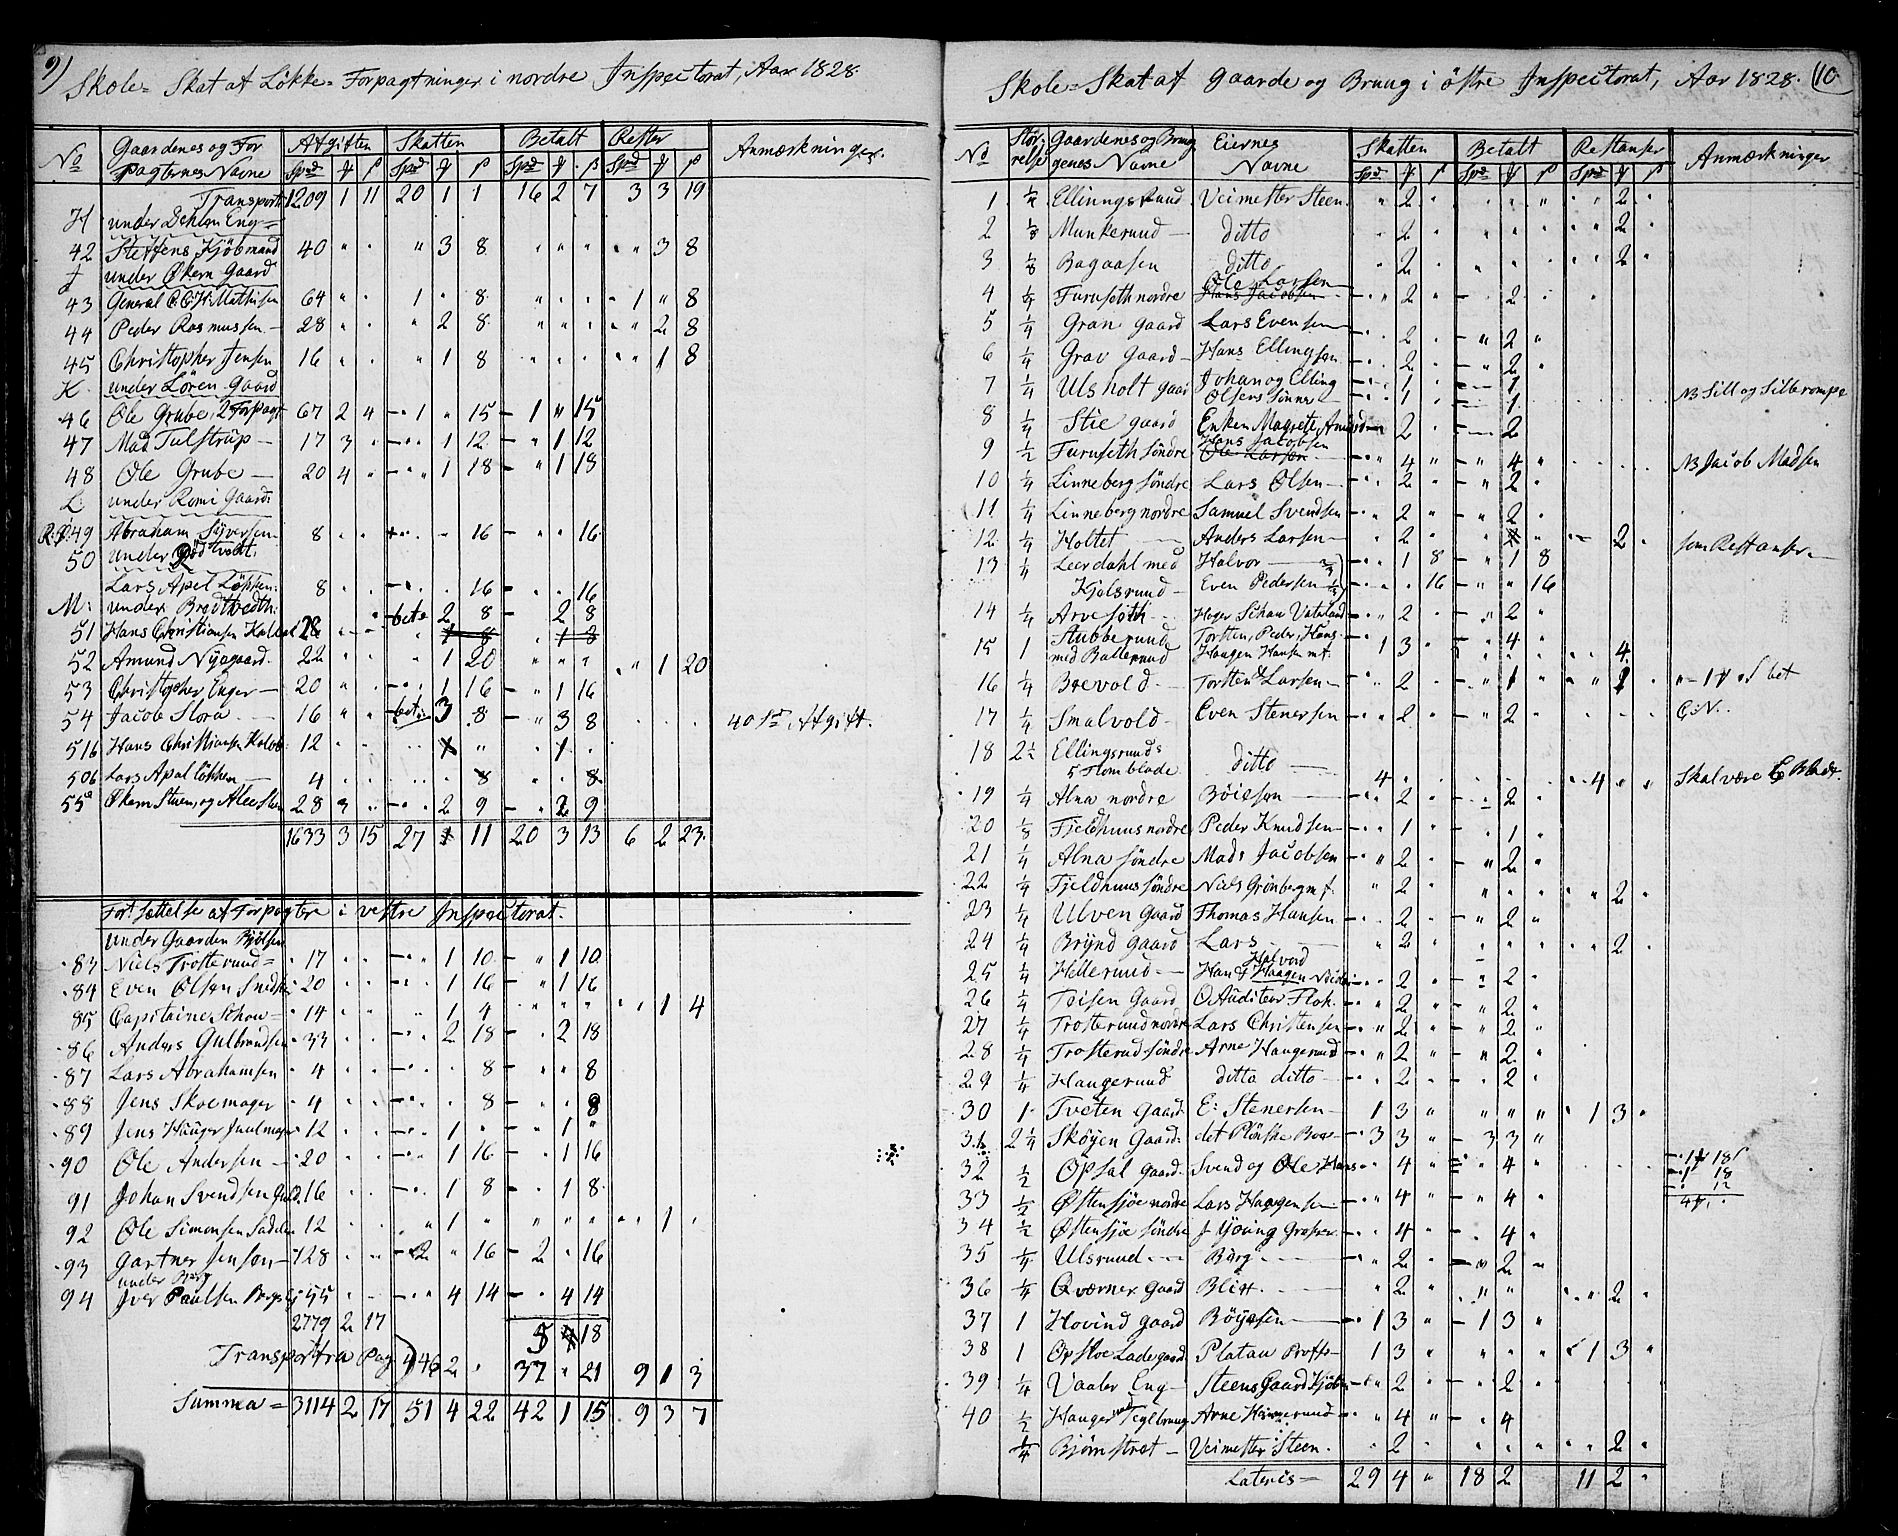 9) Skole- Skat af Løkke- Forpagtninger i nordre Inspectorat, Aar 1828.
No | Gaardenes og For pagternes Navne | Afgiften | Skatten | Betalt | Rester | Anmærkninger.
Transport 1209 1 11 20 1 1 16 2 7 3 3 19
H under Dehlen Eng
42 Steffens, Kjøbmand 40 " " " 3 8 " " " " 3 8
J under Økern Gaard
43 General Mathisen 64 " " 1 " 8 " " " 1 " 8
44 Peder Rasmussen 28 " " " 2 8 " " " " 2 8
45 Christopher Jensen 16 " " " 1 8 " " " " 1 8
K. under Løren Gaard
46 Ole Grube, 2 Forpagt 67 2 4 1 " 15 1 " 15
47 Mad Tulstrup 17 3 " " 1 12 " 1 12
48 Ole Grube 20 4 " " 1 18 " 1 18
L: under Romi Gaard:
49 Abraham Syversen 8 " " 16 " " 16
50 under Rødtvedt:
Lars Apel Løkken: 8 16 16
M: under Bredtvedt:
51 Hans Christiansen 28 bet 2 8 2 8
52 Amund Nygaard 22 " " " 1 20 " " " " 1 20
53 Christopher Enger 20 " " 1 16 " 1 16
54 Jacob Slora 16 " " bet: 3 8 " 3 8 40 Afgift.
516 Hans Christiansen Kolob 12 1 " " 1 "
506 Lars Apal Løkken 4 8 8
55 Økern Stuen, og 28 3 2 9 2 9
1633 3 15 27 1 11 20 3 13 6 2 23.
Fort sættelse af Forpagtere i vestre Inspectorat.
under Gaarden Bjølsen
83 Niels Trosterud 17 1 10 " 1 10
84 Even Olsen 20 1 16 " 1 16
85 Capitaine Schou 14 " 1 4 " " " " 1 4
86 Anders Gulbrandsen 33 2 18 2 18
87 Lars Abrahamsen 4 8 " " 8
88 Jens Skoemager 4 8 8
89 Jens Hauger 12 1 " " 1 "
90 Ole Andersen 20 1 16 1 16
91 Johan Svendsen 16 1 8 1 8
92 Ole Simonsen 12 " 1 " " " " " 1
93 Gartner Jensen 128 2 " 16 2 " 16
under Berg
94 Iver Paulsen 55 4 14 4 14
2779 2 17 5 18
Transport fra Pag 4 46 2 " 37 " 21 9 1 3
Summa = 3114 2 17 51 4 22 42 1 15 9 3 7
Skole- Skat af Gaarde og Brug i østre Inspectorat, Aar 1828. 10
No | Stør- relse | Gaardenes og Brug genes Navne | Eiernes Navne | Skatten | Betalt | Restanser | Anmærkninger
1 Ellingsrud Veimester Steen 2 2
2 1/8 Munkerud ditto 2 2
3 1/8 Bagaasen ditto 2 2
Ole Larsen
4 1/4 Furuseth nordre Hans Jacobsen 2 2
5 1/4 Gran gaard Lars Evensen 2 2
6 1/4 Grav gaard Hans Ellingsen 2 2
7 1/4 Ulsholt gaar Johan og Elling 1 1 NB Sill og Silberompe
Olsens sønner 1 1
8 1/4 Stie gaard Enken Magrete Amund 2 2
Hans Jacobsen
9 1/2 Furuseth søndre Ole Larsen 4 4 NB Jacob Madsen
10 1/4 Linneberg søndre Lars Olsen 2 2
11 1/4 Linneberg nordre Samuel Svendsen 2 2
12 1/4 Holtet Anders Larsen 2 2 som Restanser
13 1/4 Leerdahl med Halvor 1 8 1 8
Kjelsrud Even Pedersen 16 16
14 1/4 Arveseth 2 2
15 1 Stubberud Torsten, Peder, Hans 1 3 4
med Ballerud Haagen Hansen 4
16 1/4 Brevold Torsten Larsen 2 1 1 bet
17 1/4 Smalvold Even Stenersen 2 2
18 2 1/2 Ellingsrud
5 Flomblade ditto 4 4 Skal være 6 Blade.
19 1/4 Alna nordre Böiesen 2 2
20 1/8 Fjeldhuus nordre Peder Knudsen 1 1
21 1/4 Alna søndre Mads Jacobsen 2 2
22 1/4 Fjeldhuus søndre Niels Grönberg 2 2
23 1/4 Ulven Gaard Thomas Hansen 2 2
24 1/4 Brÿnd gaard Lars 2 2
Halvord
25 1/4 Hellerud Hans Haagen 2 2
26 1/4 Teisen Gaard O Auditeur Flok 2 2
27 1/4 Trosterud nordre Lars Christensen 2 2
28 1/4 Trosterud søndre Arne Haugerud 2 2
29 1/4 Haugerud ditto ditto 2 2
30 1 Tveten Gaard E: Stenersen 1 3 " " " " 1 3
31 2 1/4 Skøyen Gaard: det Plöhske Boe 3 3 3 3
32 1/2 Opsal gaard Svend og Ole Hans 4 4 1 18
33 1/2 Østensjøe nordre Lars Haagensen 4 4
34 1/2 Østensjøe søndre J Young Grosser 4 4
35 1/4 Ulsrud Berg 2 2
36 1/4 Qværner Gaard Blix 2 2
37 1 Hovind Gaard Böyesen 1 3 1 3
38 1 Opsloe Ladegaard Platau Proffs 1 3 1 3
39 1/4 Vaaler Eng Steens Gaard 2 2
40 1/2 Hauger Teglbrug Arne Haugerud 4 4
1/4 Bjørnstret Veimester Steen. 2 2
Lateris 29 4 " 18 2 11 2 "